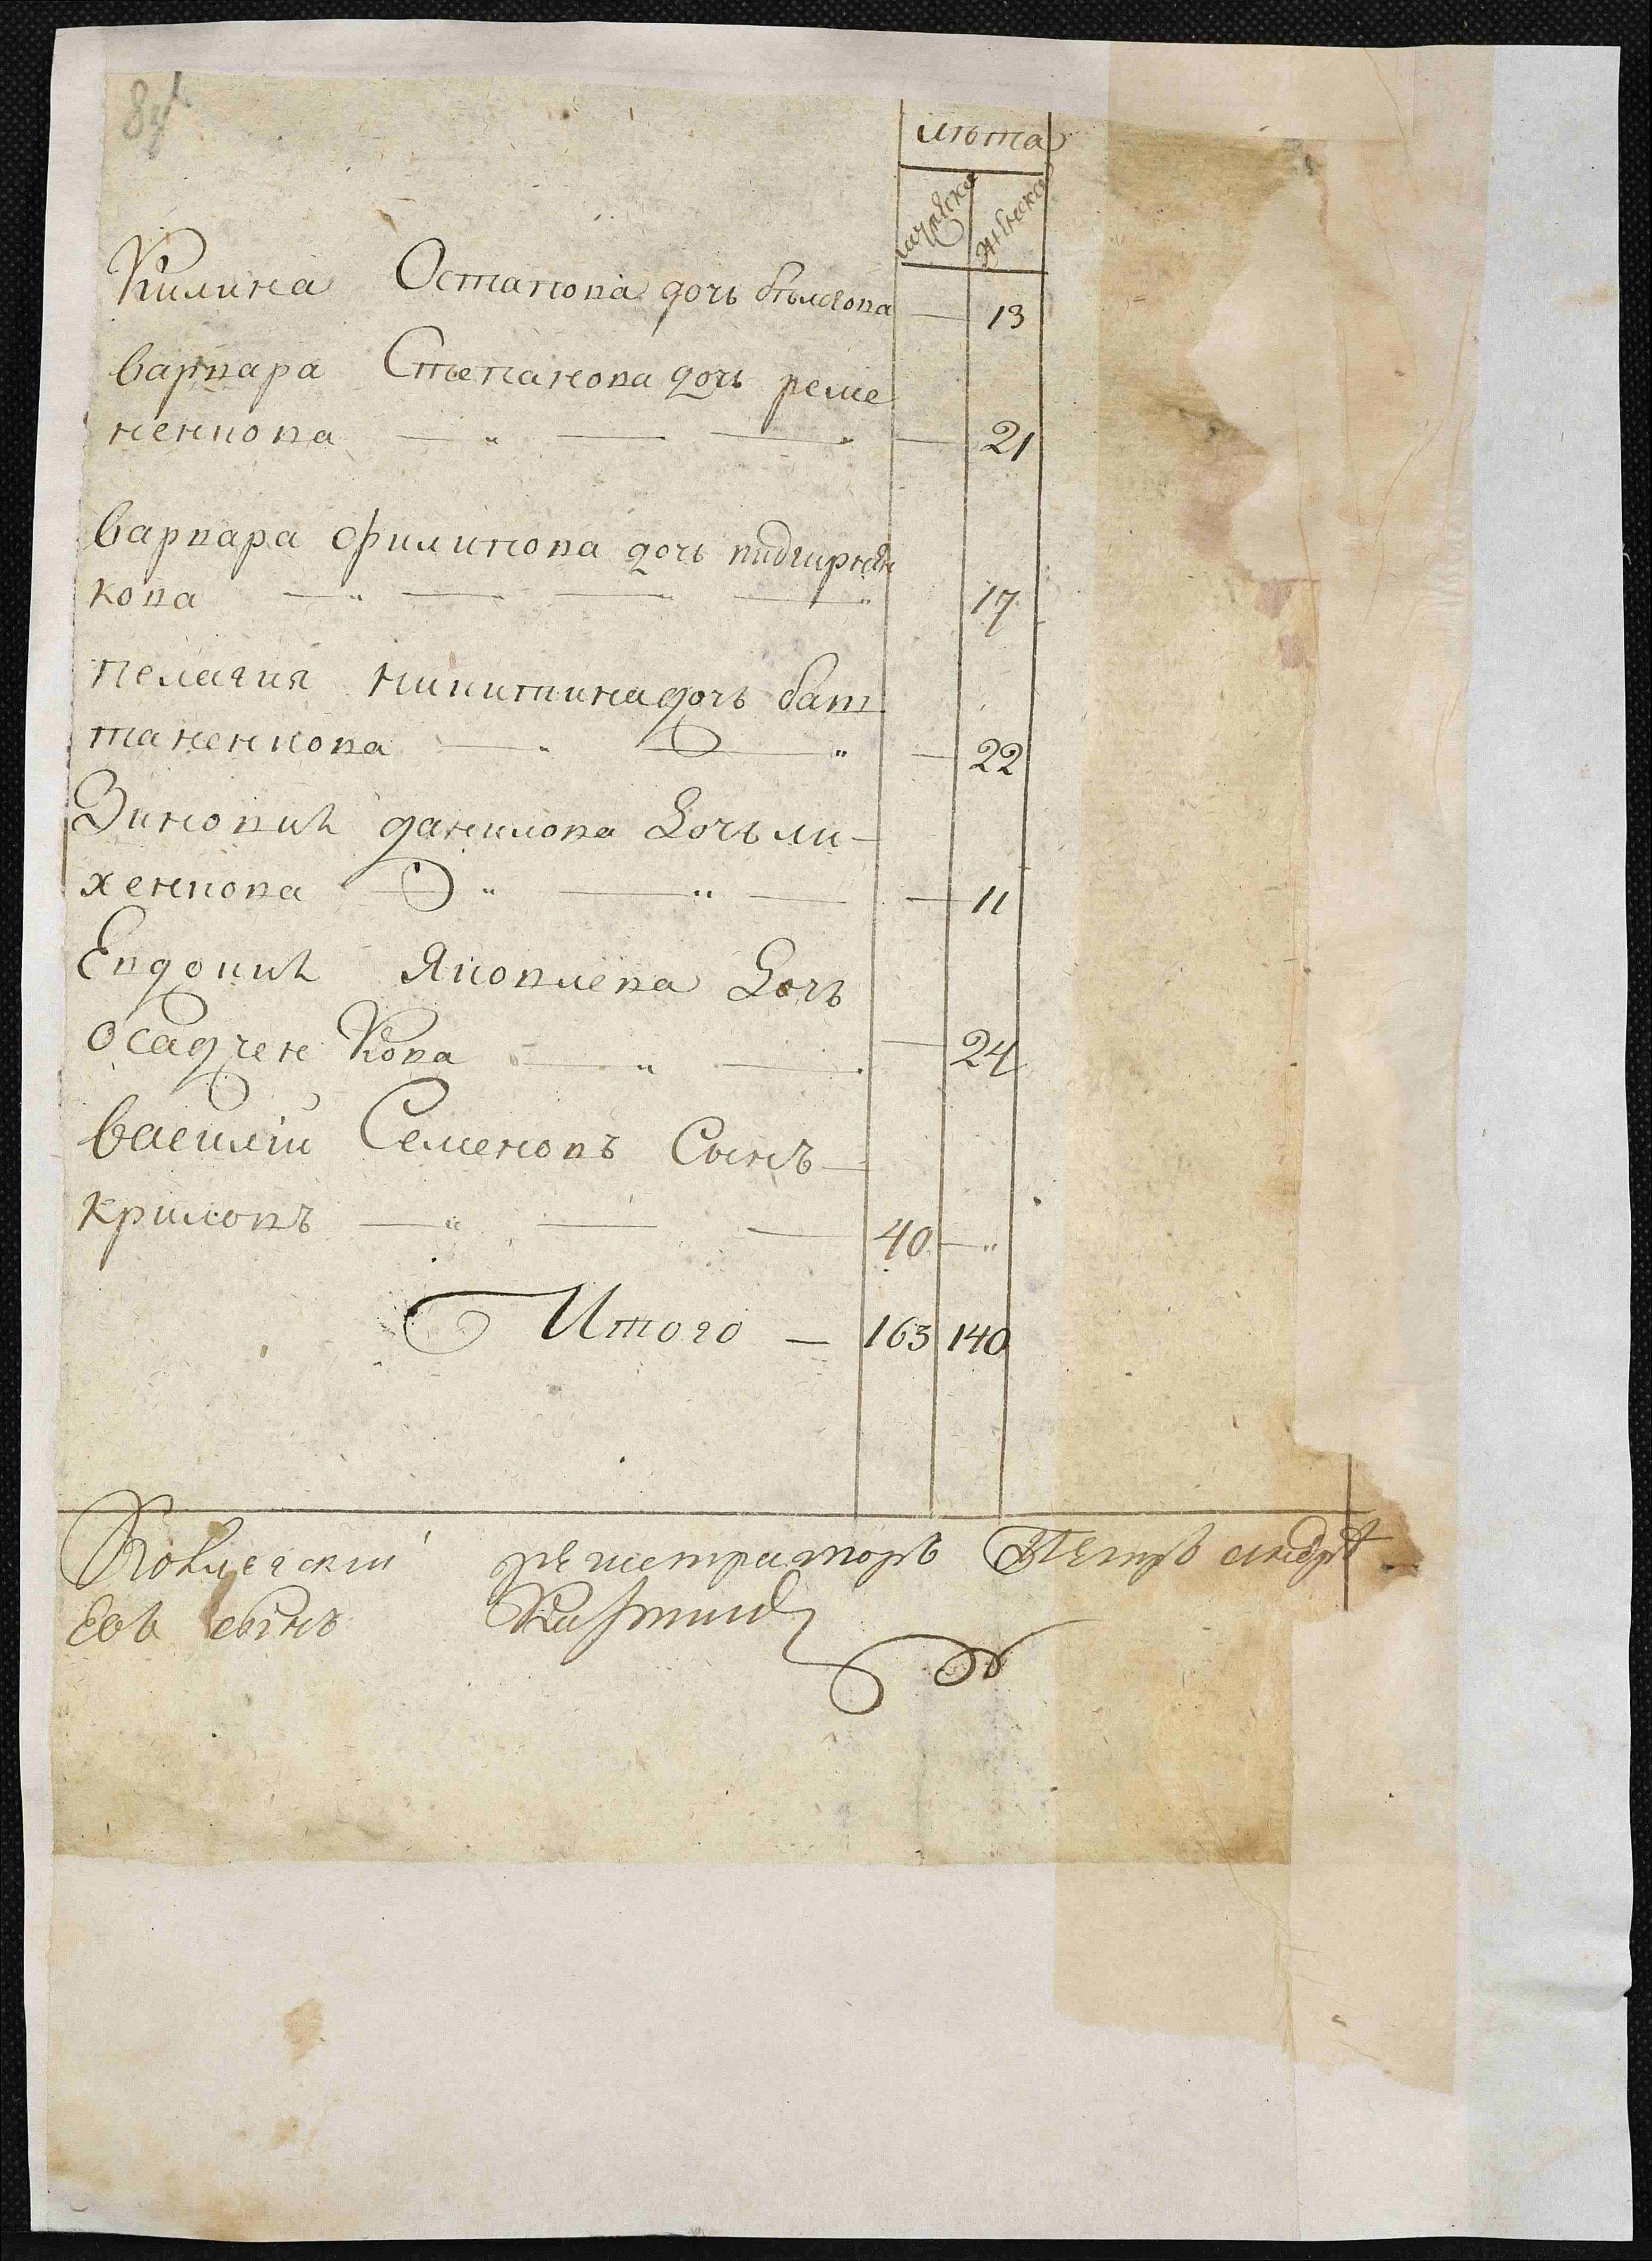 84
лѣта
мужеска женска
Килина Остапова дочь бѣлаова — 13
варвара Степанова дочь реме
ненкова — „ — — „ — 21
варвара филипова дочь пидгирнян
кова — „ — — — „ 17
пелагия никитина дочь бат
таненкова — „ — „ — 22
Зиновия данилова дочь ли-
хенкова — „ — „ — — 11
Евдокия Яковлева дочь
осадченкова — „ — — 24
василій Семеновъ сынъ —
криловъ — „ — — 40 — „
Итого — 163 140
регистраторъ Петръ андре
евъ сынъ